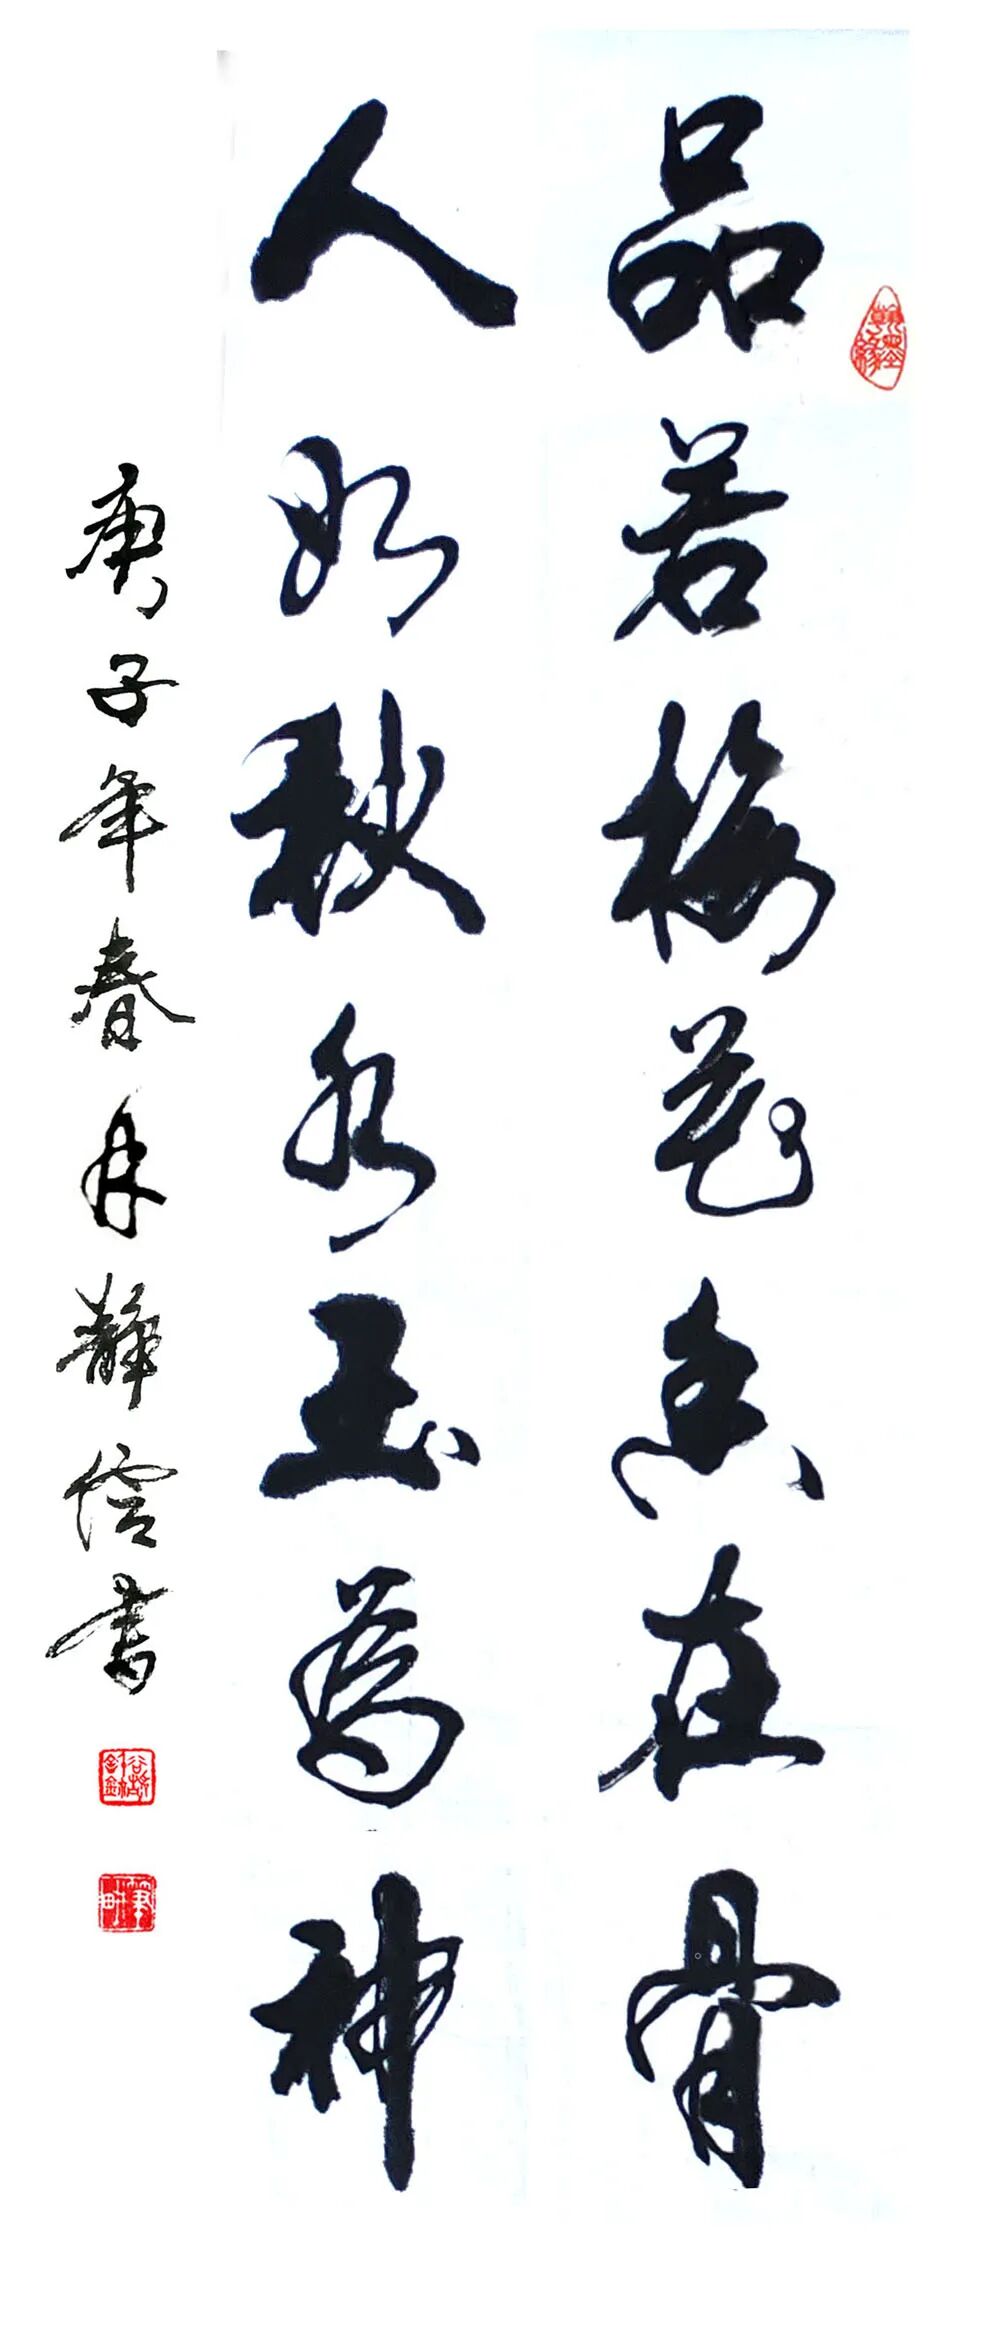 品若梅花香在骨
人如秋水玉为神
庚子年春月静信书